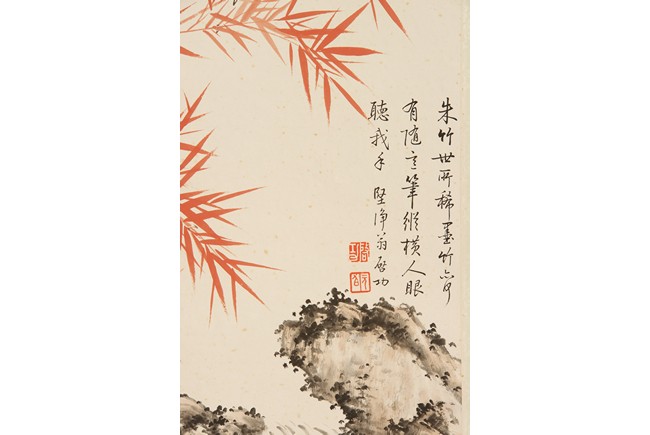 朱竹世所稀墨竹
有随意筆縱横人眼
聽我手 堅净翁啟功
啟功
元白